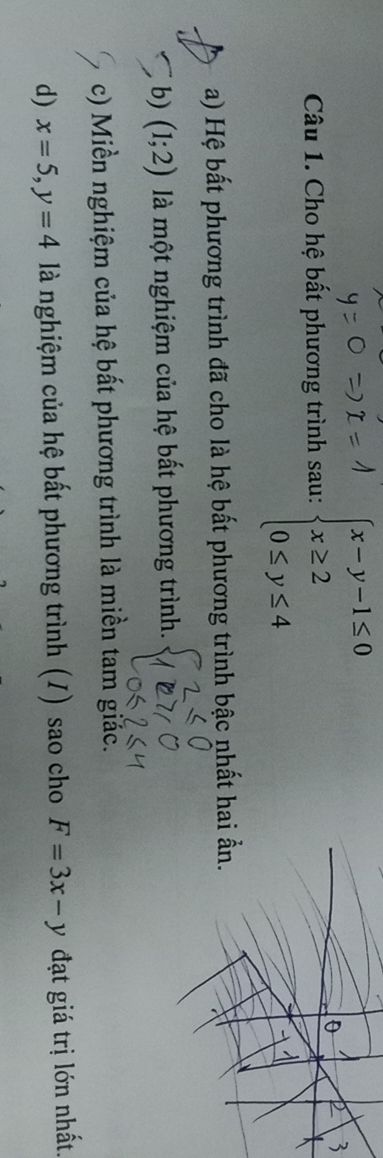 y = 0 => x = 1
Câu 1. Cho hệ bất phương trình sau: { x − y − 1 ≤ 0
x ≥ 2
0 ≤ y ≤ 4
a) Hệ bất phương trình đã cho là hệ bất phương trình bậc nhất hai ẩn.
b) (1;2) là một nghiệm của hệ bất phương trình.
2 ≤ 0
1 ≥ 0
0 ≤ 2 ≤ 4
c) Miền nghiệm của hệ bất phương trình là miền tam giác.
d) x = 5, y = 4 là nghiệm của hệ bất phương trình (I) sao cho F = 3x − y đạt giá trị lớn nhất.
0 1 2 3
-1